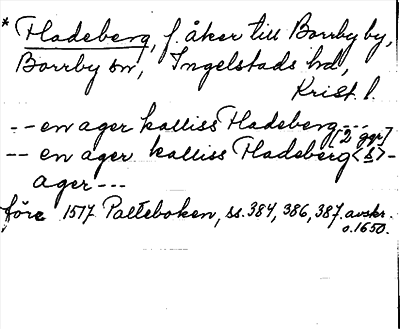 * Hadeberg, f. åker till Borrby by,
Borrby sn, Ingelstads hd,
Krist. l.
-- en ager kalliss Hadeberg ---
[2 ggr]
-- en ager kalliss Hadeberg <s> -
ager ---
före 1517 Palteboken, ss. 384, 386, 387. avskr.
o. 1650.